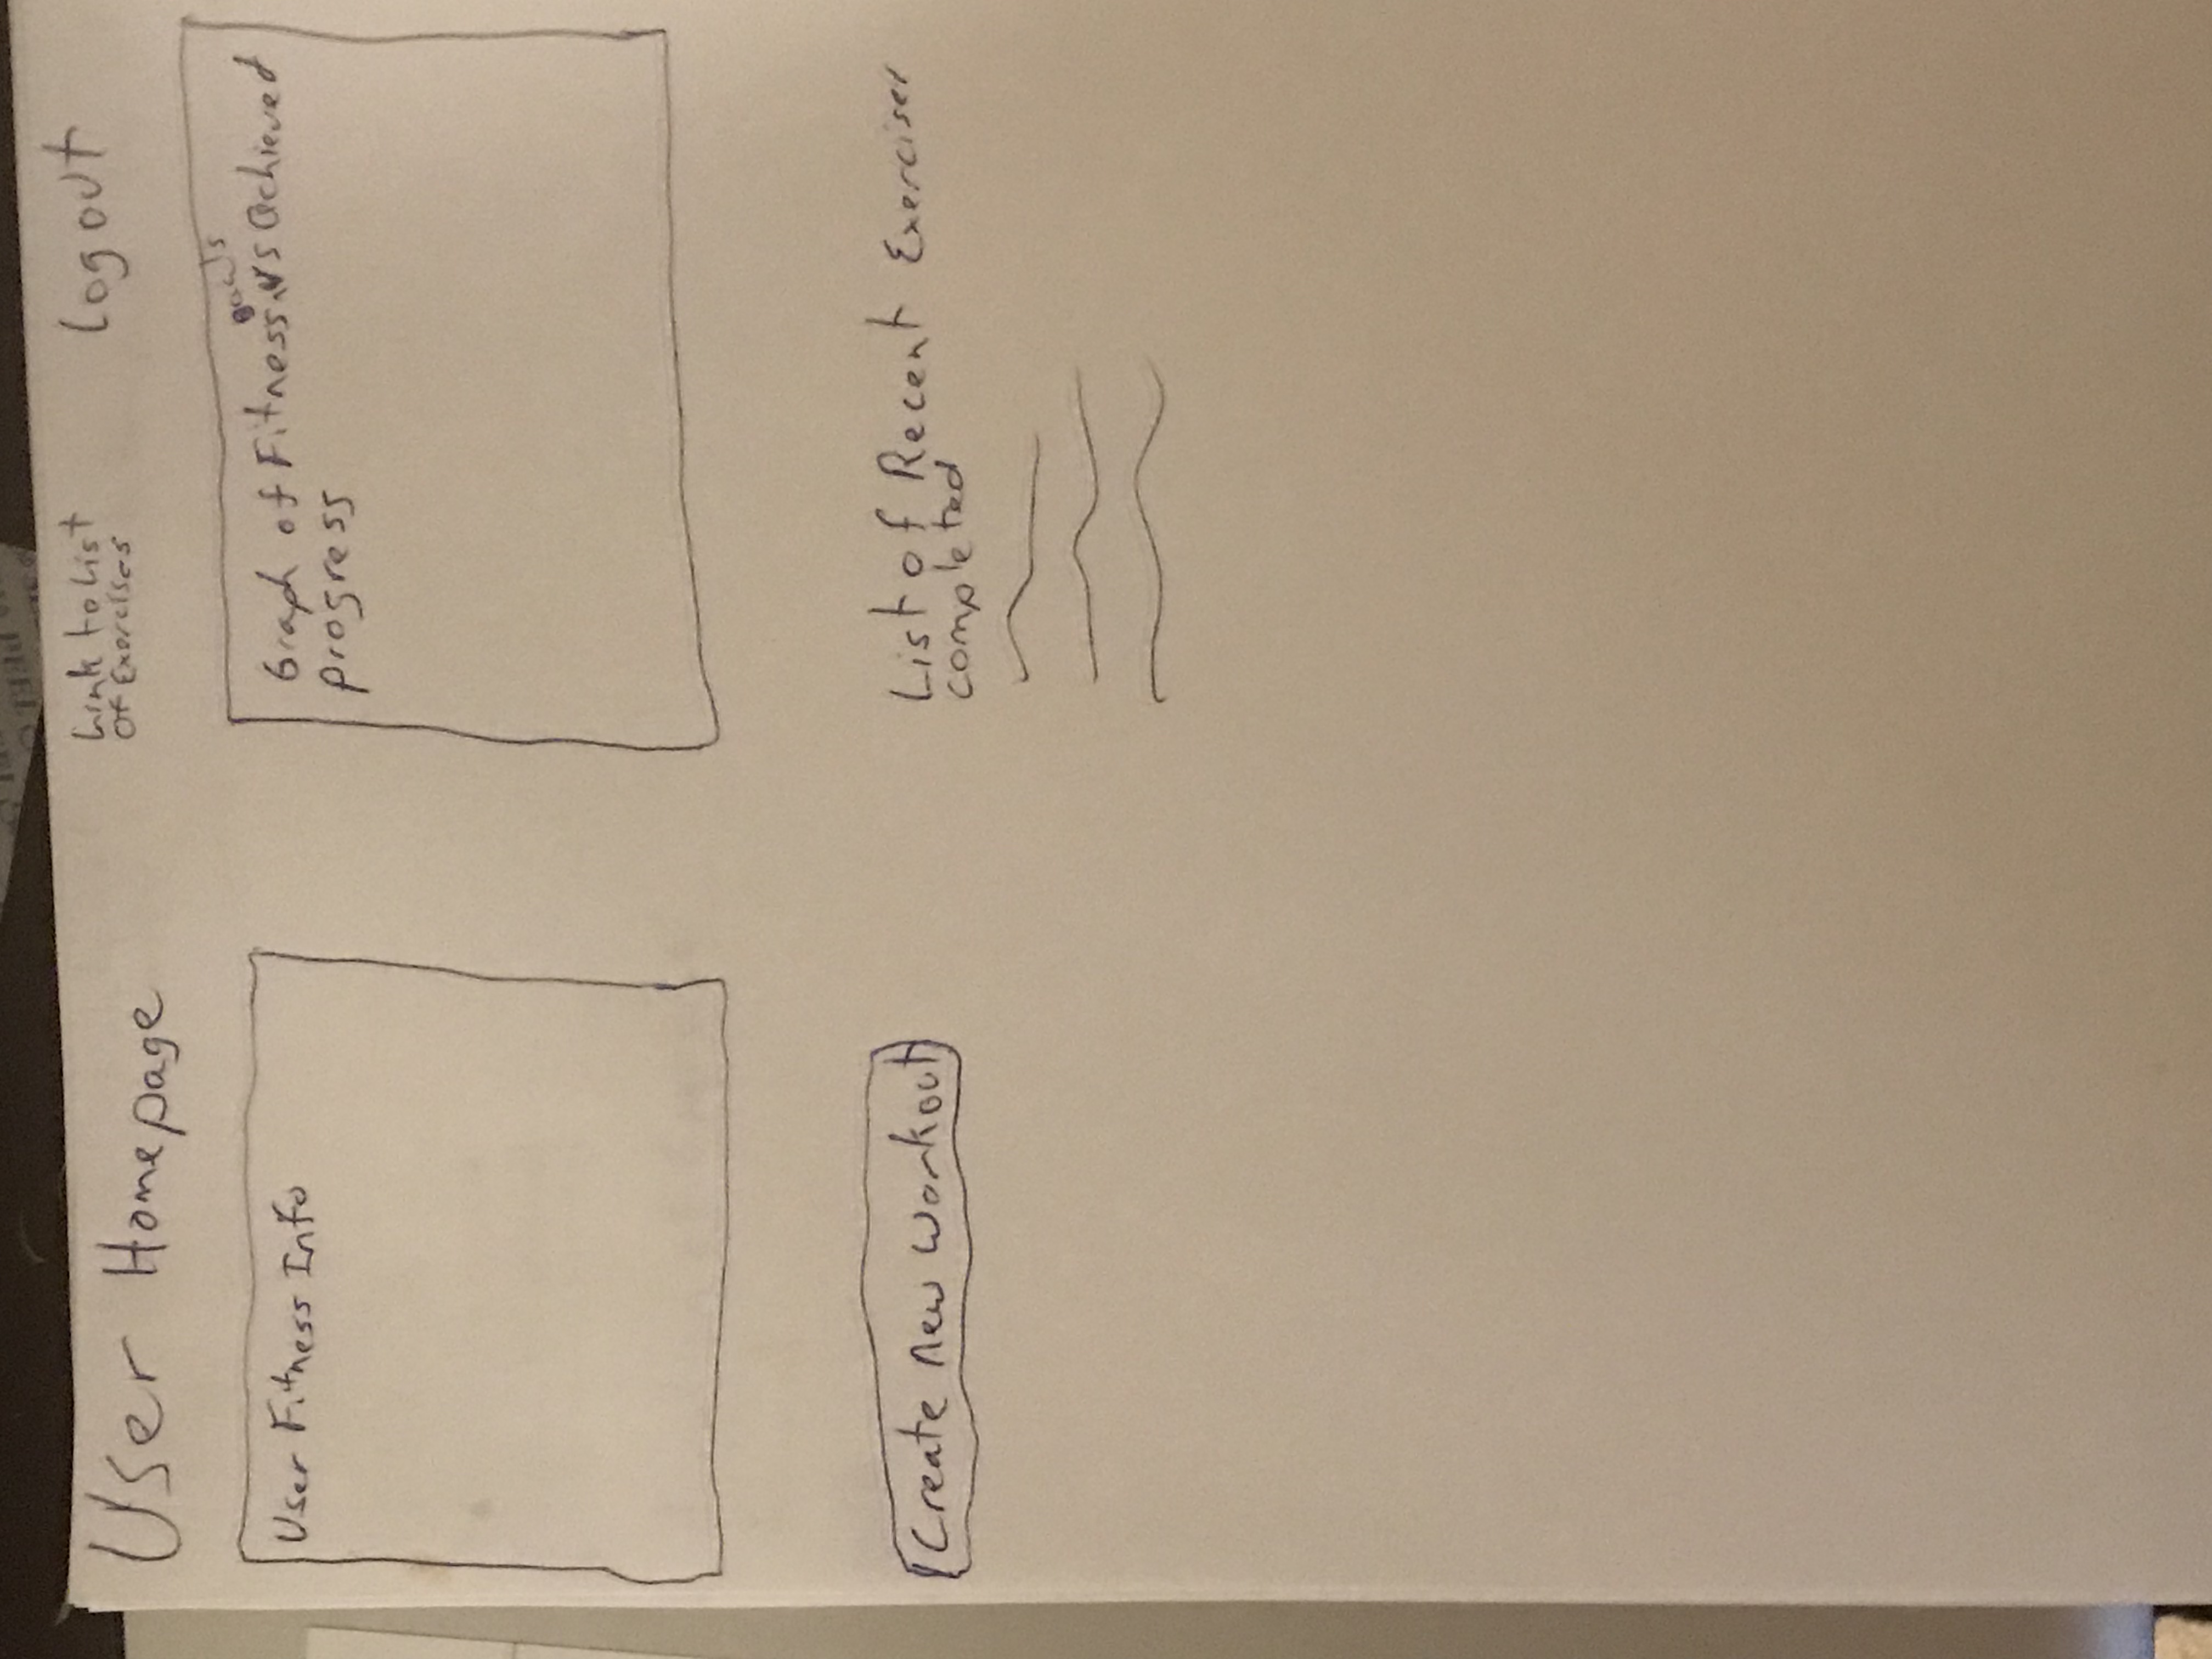 User Homepage
Link to List
Of Exercises
Logout
User Fitness Info
goals
Graph of Fitness vs Achieved
progress
Create New Workout
List of Recent Exercises
completed